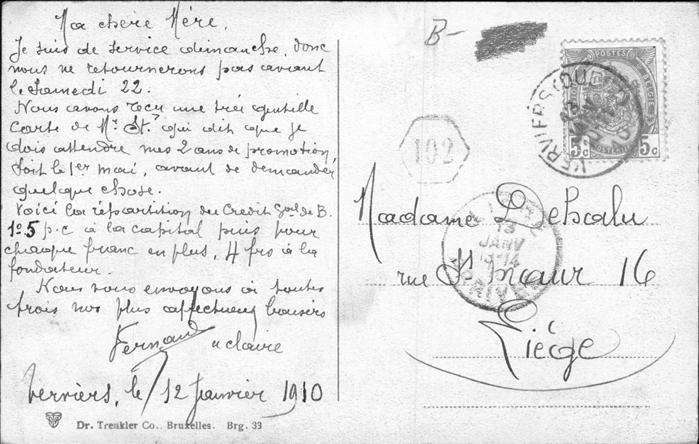 Ma chère Mère.
Je suis de service dimanche, donc
nous ne retournerons pas avant
le Samedi 22.
Nous avons reçu une très gentille
Carte de Mr St. qui dit que je
dois attendre mes 2 ans de promotion,
soit le 1er mai, avant de demander
quelque chose.
Voici la répartition du Crédit Gal de B.
1° 5 p.c à la capital puis pour
chaque franc en plus, 4 frs à la
fondateur.
Nous vous envoyons à toutes
trois nos plus affectueux baisers
Fernand & claire
Verviers, le 12 Janvier 1910
Dr. Trenkler Co., Bruxelles. Brg. 33
B-
102
POSTES
5c 5c
VERVIERS (OUEST)
13
JANV
Madame Dehalu
rue St Maur 16
Liége